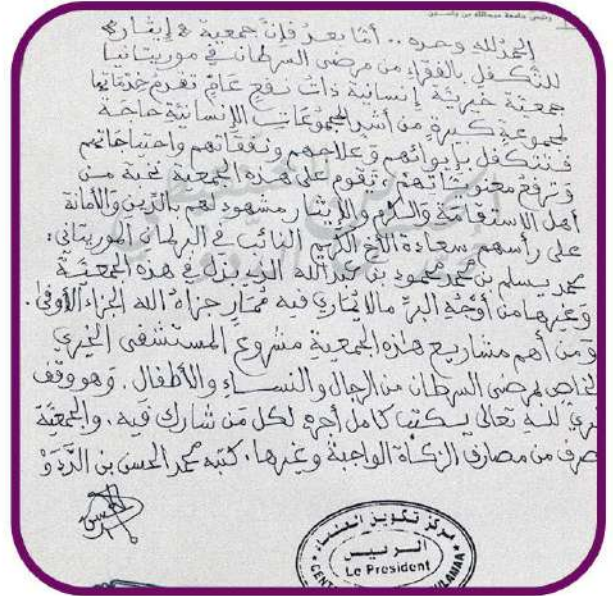 ورئيس جامعة عبدالله بن ياسين
الحمد لله وحده .. أما بعد فإن جمعية «إيثار»
للتكفل بالفقراء من مرضى السرطان في موريتانيا
جمعية خيرية إنسانية ذات نفع عام تقدم خدماتها
لمجموعة كبيرة من أشد المجموعات الإنسانية حاجة
فتتكفل بإيوائهم وعلاجهم ونفقاتهم واحتياجاتهم
وترفع معنوياتهم وتقوم على هذه الجمعية نخبة من
أهل الاستقامة والكرم والإيثار مشهود لهم بالدين والأمانة
على رأسهم سعادة الأخ الكريم النائب في البرلمان الموريتاني:
محمد يسلم بن محمد محمود بن عبدالله الذي بذل في هذه الجمعية
وغيرها من أوجه البر ما لا يماري فيه ممار جزاه الله الجزاء الأوفى.
ومن أهم مشاريع هذه الجمعية مشروع المستشفى الخيري
الخاص لمرضى السرطان من الرجال والنساء والأطفال. وهو وقف
خيري لله تعالى يكتب كامل أجره لكل من شارك فيه. والجمعية
مصرف من مصارف الزكاة الواجبة وغيرها. كتبه محمد الحسن بن الددو
مركز تكوين العلماء
الرئيس
Le President